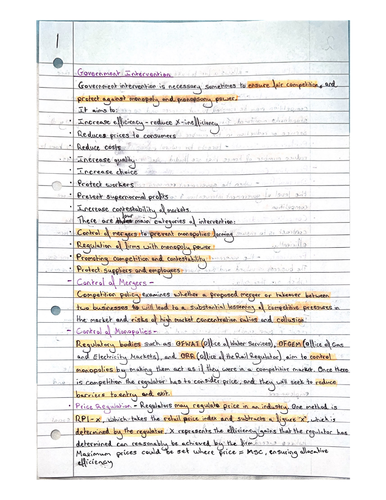 1
Government Intervention
Government intervention is necessary sometimes to ensure fair competition, and
protect against monopoly and monopsony power.
It aims to:
Increase efficiency - reduce X-inefficiency
Reduces prices to consumers
Reduce costs
Increase quality
Increase choice
Protect workers
Prevent supernormal profits
Increase contestability of markets.
There are four main categories of intervention:
Control of mergers to prevent monopolies forming
Regulation of firms with monopoly power
Promoting competition and contestability
Protect suppliers and employees.
- Control of Mergers -
Competition policy examines whether a proposed merger or takeover between
two businesses will lead to a substantial lessening of competitive pressures in
the market and risks of high market concentration and collusion.
- Control of Monopolies -
Regulatory bodies such as OFWAT (Office of Water Services), OFGEM (Office of Gas
and Electricity Markets), and ORR (Office of the Rail Regulator), aim to control
monopolies by making them act as if they were in a competitive market. Once there
is competition the regulator has to consider price, and they will seek to reduce
barriers to entry and exit.
Price Regulation - Regulators may regulate price in an industry. One method is
RPI-X, which takes the retail price index and subtracts a figure 'x', which is
determined by the regulator. X represents the efficiency gains that the regulator has
determined can reasonably be achieved by the firm.
Maximum prices could be set where price = MSC, ensuring allocative
efficiency